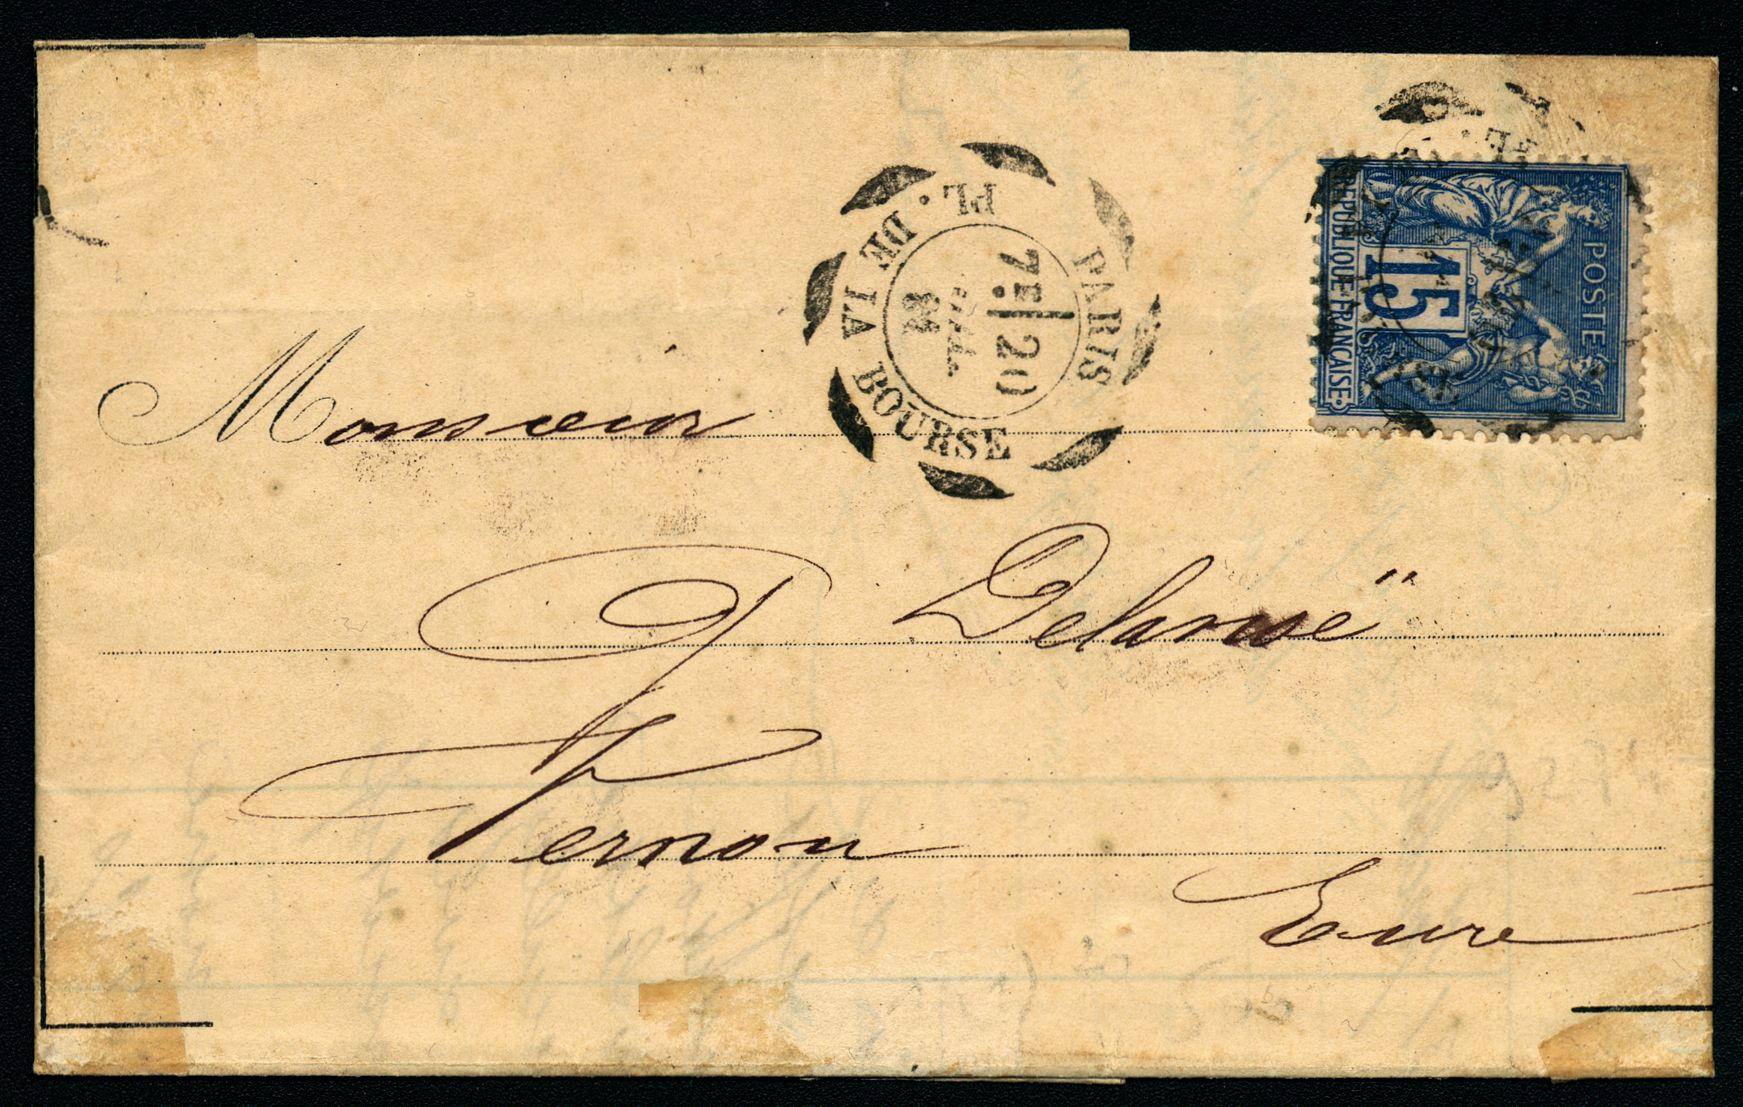 PARIS
PL. DE LA BOURSE
7E 20
88
POSTE
15
REPUBLIQUE FRANÇAISE
Monsieur
Delarue
Vernon
Eure